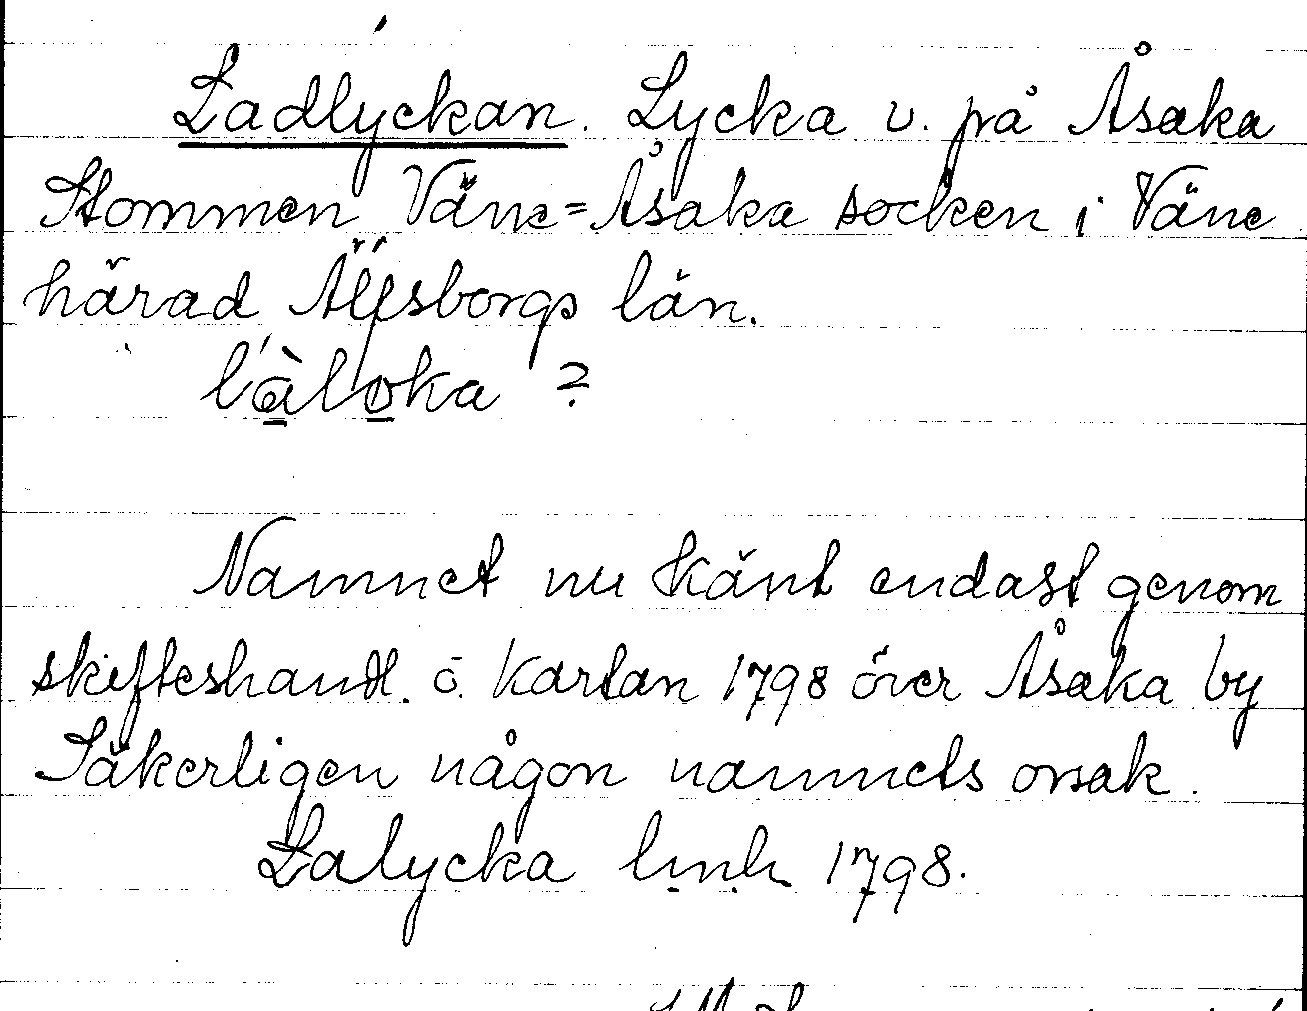 Ladlyckan. Lycka v. på Åsaka
Stommen Väne=Åsaka socken i Väne
härad Älfsborgs län.
là̱lo̱ka ?
Namnet nu känt endast genom
skifteshandl. o. kartan 1798 över Åsaka by
Säkerligen någon namnets orsak.
Lalycka 1798.